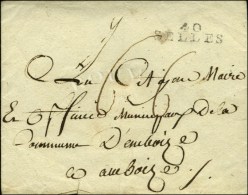 40
SELLES
Au Citoyen Maire
Et Officiers Municipaux de la
Commune D'emboise
a amboise